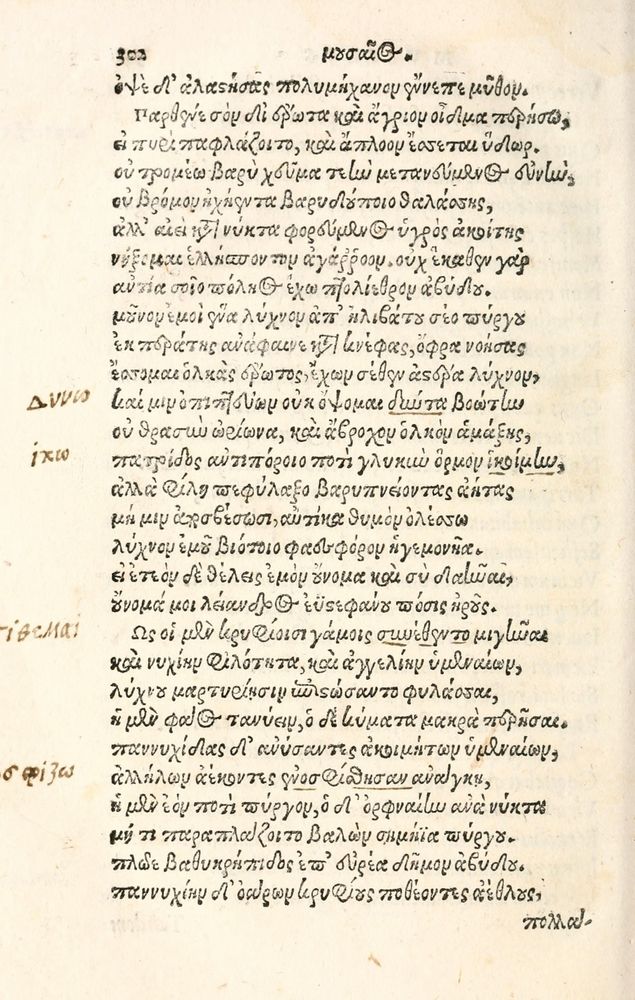 302 μουσαῖος.
ὀψὲ δ' ἀλαστήσας πολυμήχανον ἔννεπε μῦθον.
Παρθένε σὸν δι' ἔρωτα καὶ ἄγριον οἶδμα περήσω,
εἰ πυρὶ παφλάζοιτο, καὶ ἄπλοον ἔσσεται ὕδωρ.
οὐ τρομέω βαρὺ χεῦμα τεὴν μετανεύμενος εὐνήν,
οὐ βρόμον ἠχήεντα βαρυδούποιο θαλάσσης,
ἀλλ' αἰεὶ κατὰ νύκτα φορεύμενος ὑγρὸς ἀκοίτης
νήξομαι ἑλλήσποντον ἀγάρροον. οὐχ ἕκαθεν γὰρ
ἀντία σοῖο πόληος ἔχω πτολίεθρον ἀβύδου.
μοῦνον ἐμοὶ ἕνα λύχνον ἀπ' ἠλιβάτου σέο πύργου
ἐκ περάτης ἀνάφαινε κατὰ κνέφας, ὄφρα νοήσας
ἔσσομαι ὁλκὰς ἔρωτος, ἔχων σέθεν ἀστέρα λύχνον,
Δυνω
καί μιν ὀπιπτεύων οὐκ ὄψομαι δύοντα βοώτην
οὐ θρασὺν ὠρίωνα, καὶ ἄβροχον ὁλκὸν ἁμάξης,
ἱκω
πατρίδος ἀντιπόροιο ποτὶ γλυκὺν ὅρμον ἱκοίμην,
ἀλλὰ φίλη πεφύλαξο βαρυπνείοντας ἀήτας
μή μιν ἀποσβέσωσι, αὐτίκα θυμὸν ὀλέσσω
λύχνον ἐμοῦ βιότοιο φαεσφόρον ἡγεμονῆα.
εἰ ἐτεὸν δὲ θέλεις ἐμὸν οὔνομα καὶ σὺ δαῆναι,
οὔνομά μοι λέιανδρος ἐϋστεφάνου πόσις ἡροῦς.
τιθεμαι
Ὣς οἱ μὲν κρυφίοισι γάμοις συνέθεντο μιγῆναι
καὶ νυχίην φιλότητα, καὶ ἀγγελίην ὑμεναίων,
λύχνου μαρτυρίῃσιν ἐπιστώσαντο φυλάσσαι,
ἡ μὲν φάος τανύειν, ὁ δὲ κύματα μακρὰ περῆσαι.
παννυχίδας δ' ἀνύσαντες ἀκοιμήτων ὑμεναίων,
σφιζω
ἀλλήλων ἀέκοντες ἐνοσφίσθησαν ἀνάγκῃ,
ἡ μὲν ἑὸν ποτὶ πύργον, ὁ δ' ὀρφναίην ἀνὰ νύκτα
μή τι παραπλάζοιτο βαλὼν σημήϊα πύργου.
πλῶε βαθυκρήπιδος ἐπ' εὐρέα δῆμον ἀβύδου.
παννυχίην δ' ὀάρων κρυφίους ποθέοντες ἀέθλους,
πολλά-